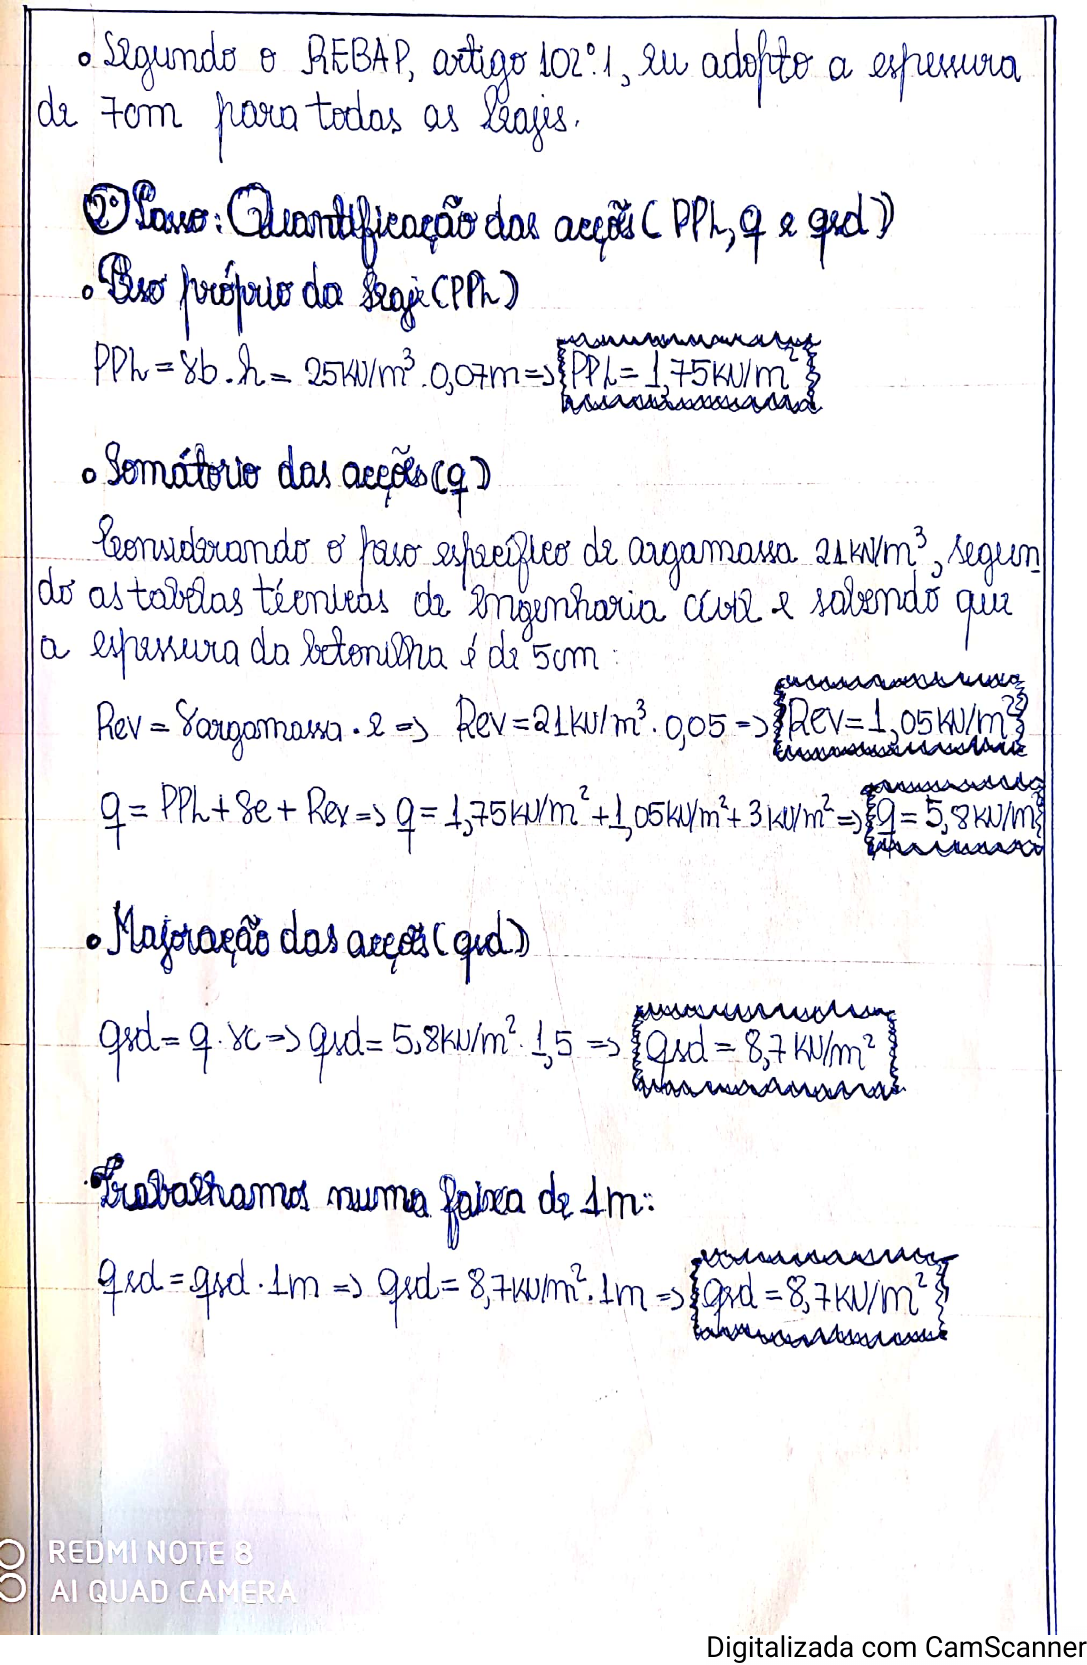 • Segundo o REBAP, artigo 102º.1, eu adopto a espessura
de 7cm para todas as lajes.
2º Passo: Quantificação das acções (PPh, q e qsd)
• Peso próprio da laje (PPh)
PPh = γb . h = 25KN/m³ . 0,07m => PPh = 1,75KN/m²
• Somátorio das acções (q)
Considerando o peso específico de argamassa 21KN/m³, segun
do as tabelas técnicas de engenharia civil e sabendo que
a espessura da betonilha é de 5cm :
Rev = γargamassa . e => Rev = 21KN/m³ . 0,05 => Rev = 1,05KN/m²
q = PPh + Se + Rev => q = 1,75KN/m² + 1,05KN/m² + 3KN/m² => q = 5,8KN/m²
• Majoração das acções (qsd)
qsd = q . γc => qsd = 5,8KN/m² . 1,5 => qsd = 8,7KN/m²
• Trabalhamos numa faixa de 1m:
qsd = qsd . 1m => qsd = 8,7KN/m² . 1m => qsd = 8,7KN/m²
REDMI NOTE 8
AI QUAD CAMERA
Digitalizada com CamScanner